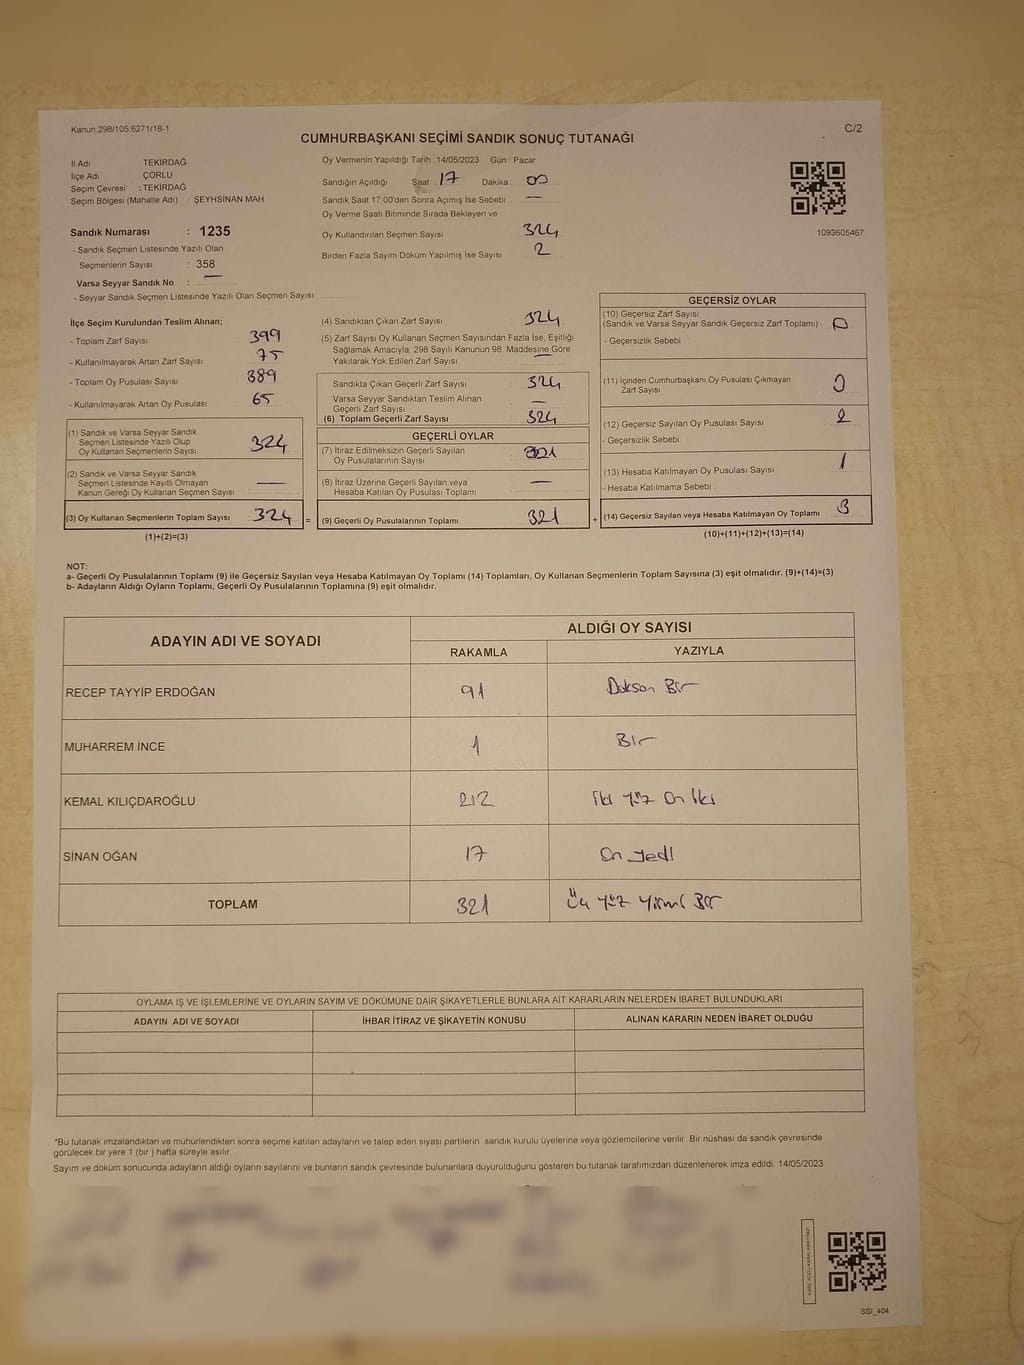 Kanun:298/105;6271/18-1
C/2
CUMHURBAŞKANI SEÇİMİ SANDIK SONUÇ TUTANAĞI
İl Adı TEKİRDAĞ
İlçe Adı ÇORLU
Seçim Çevresi : TEKİRDAĞ
Seçim Bölgesi (Mahalle Adı) : ŞEYHSİNAN MAH
Sandık Numarası : 1235
- Sandık Seçmen Listesinde Yazılı Olan
Seçmenlerin Sayısı : 358
Varsa Seyyar Sandık No : —
- Seyyar Sandık Seçmen Listesinde Yazılı Olan Seçmen Sayısı
Oy Vermenin Yapıldığı Tarih 14/05/2023 Gün Pazar
Sandığın Açıldığı Saat 17 Dakika 00
Sandık Saat 17.00'den Sonra Açımış İse Sebebi —
Oy Verme Saati Bitiminde Sırada Bekleyen ve
Oy Kullandırılan Seçmen Sayısı 324
Birden Fazla Sayım Döküm Yapılmış İse Sayısı 2
1093605467
İlçe Seçim Kurulundan Teslim Alınan;
- Toplam Zarf Sayısı 399
- Kullanılmayarak Artan Zarf Sayısı 75
- Toplam Oy Pusulası Sayısı 389
- Kullanılmayarak Artan Oy Pusulası 65
(1) Sandık ve Varsa Seyyar Sandık
Seçmen Listesinde Yazılı Olup
Oy Kullanan Seçmenlerin Sayısı 324
(2) Sandık ve Varsa Seyyar Sandık
Seçmen Listesinde Kayıtlı Olmayan
Kanun Gereği Oy Kullanan Seçmen Sayısı —
(3) Oy Kullanan Seçmenlerin Toplam Sayısı 324 =
(1)+(2)=(3)
(4) Sandıktan Çıkan Zarf Sayısı 324
(5) Zarf Sayısı Oy Kullanan Seçmen Sayısından Fazla İse, Eşitliği
Sağlamak Amacıyla; 298 Sayılı Kanunun 98. Maddesine Göre
Yakılarak Yok Edilen Zarf Sayısı —
Sandıkta Çıkan Geçerli Zarf Sayısı 324
Varsa Seyyar Sandıktan Teslim Alınan
Geçerli Zarf Sayısı —
(6) Toplam Geçerli Zarf Sayısı 324
GEÇERLİ OYLAR
(7) İtiraz Edilmeksizin Geçerli Sayılan
Oy Pusulalarının Sayısı 321
(8) İtiraz Üzerine Geçerli Sayılan veya
Hesaba Katılan Oy Pusulası Toplamı —
(9) Geçerli Oy Pusulalarının Toplamı 321 +
GEÇERSİZ OYLAR
(10) Geçersiz Zarf Sayısı
(Sandık ve Varsa Seyyar Sandık Geçersiz Zarf Toplamı) 0
- Geçersizlik Sebebi
(11) İçinden Cumhurbaşkanı Oy Pusulası Çıkmayan
Zarf Sayısı 0
(12) Geçersiz Sayılan Oy Pusulası Sayısı 2
- Geçersizlik Sebebi
(13) Hesaba Katılmayan Oy Pusulası Sayısı 1
- Hesaba Katılmama Sebebi
(14) Geçersiz Sayılan veya Hesaba Katılmayan Oy Toplamı 3
(10)+(11)+(12)+(13)=(14)
NOT:
a- Geçerli Oy Pusulalarının Toplamı (9) ile Geçersiz Sayılan veya Hesaba Katılmayan Oy Toplamı (14) Toplamları, Oy Kullanan Seçmenlerin Toplam Sayısına (3) eşit olmalıdır. (9)+(14)=(3)
b- Adayların Aldığı Oyların Toplamı, Geçerli Oy Pusulalarının Toplamına (9) eşit olmalıdır.
ADAYIN ADI VE SOYADI ALDIĞI OY SAYISI
RAKAMLA YAZIYLA
RECEP TAYYİP ERDOĞAN 91 Doksan Bir
MUHARREM İNCE 1 Bir
KEMAL KILIÇDAROĞLU 212 İki Yüz On İki
SİNAN OĞAN 17 On Yedi
TOPLAM 321 Üç Yüz Yirmi Bir
OYLAMA İŞ VE İŞLEMLERİNE VE OYLARIN SAYIM VE DÖKÜMÜNE DAİR ŞİKAYETLERLE BUNLARA AİT KARARLARIN NELERDEN İBARET BULUNDUKLARI
ADAYIN ADI VE SOYADI İHBAR İTİRAZ VE ŞİKAYETİN KONUSU ALINAN KARARIN NEDEN İBARET OLDUĞU
*Bu tutanak imzalandıktan ve mühürlendikten sonra seçime katılan adayların ve talep eden siyasi partilerin sandık kurulu üyelerine veya gözlemcilerine verilir. Bir nüshası da sandık çevresinde
görülecek bir yere 1 (bir) hafta süreyle asılır.
Sayım ve döküm sonucunda adayların aldığı oyların sayılarını ve bunların sandık çevresinde bulunanlara duyurulduğunu gösteren bu tutanak tarafımızdan düzenlenerek imza edildi. 14/05/2023
SSI_404